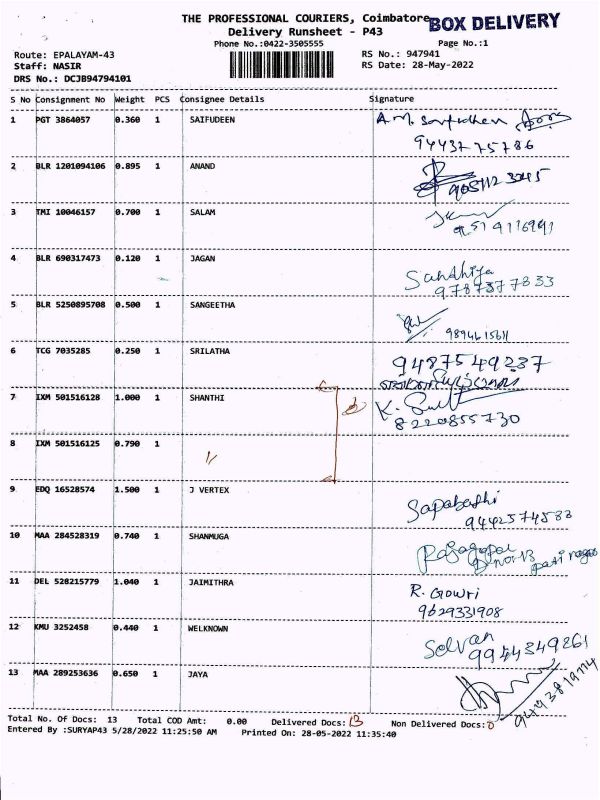 THE PROFESSIONAL COURIERS, Coimbatore
BOX DELIVERY
Delivery Runsheet - P43
Phone No.:0422-3505555
Page No.:1
Route: EPALAYAM-43
RS No.: 947941
Staff: NASIR
RS Date: 28-May-2022
DRS No.: DCJB94794101
S No Consignment No Weight PCS Consignee Details Signature
1 PGT 3864057 0.360 1 SAIFUDEEN
9443775786
2 BLR 1201094106 0.895 1 ANAND
3 TMI 10046157 0.700 1 SALAM
4 BLR 690317473 0.120 1 JAGAN
Sandhiya
9787377833
5 BLR 5250895708 0.500 1 SANGEETHA
6 TCG 7035285 0.250 1 SRILATHA
9487549237
7 IXM 501516128 1.000 1 SHANTHI
8220855730
8 IXM 501516125 0.790 1
9 EDQ 16528574 1.500 1 J VERTEX
9442574583
10 MAA 284528319 0.740 1 SHANMUGA
Rajagopal
11 DEL 528215779 1.040 1 JAIMITHRA
R. Gowri
9629331908
12 KMU 3252458 0.440 1 WELKNOWN
Selvan
9944349261
13 MAA 289253636 0.650 1 JAYA
Total No. Of Docs: 13 Total COD Amt: 0.00 Delivered Docs: 13 Non Delivered Docs: 0
Entered By :SURYAP43 5/28/2022 11:25:50 AM Printed On: 28-05-2022 11:35:40